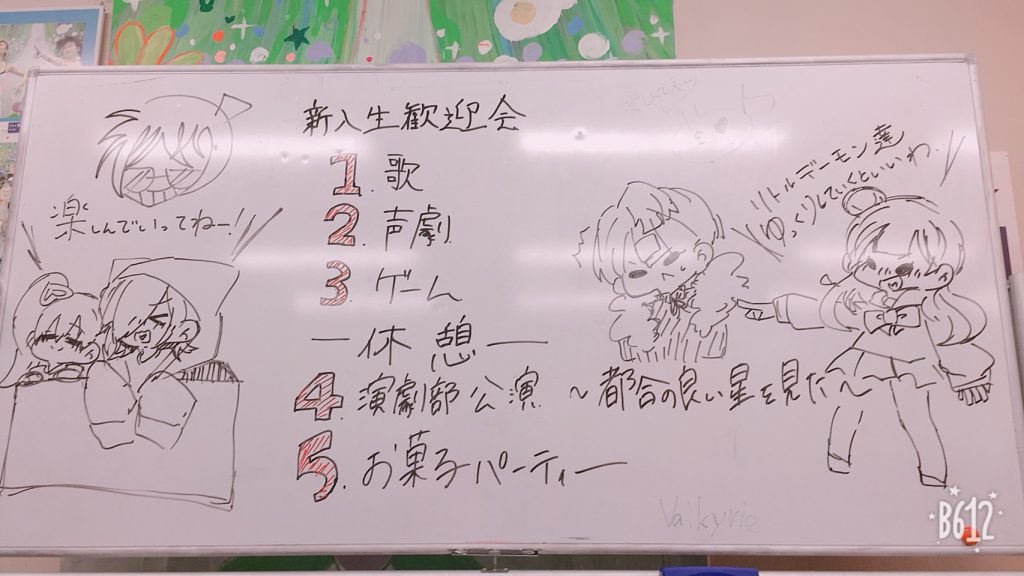 新入生歓迎会
1. 歌
2. 声劇
3. ゲーム
―休憩―
4. 演劇部公演 ～都合の良い星を見た～
5. お菓子パーティー
楽しんでいってねー!!
リトルデーモン達
ゆっくりしていくといいわ…
Valkyrie
B612